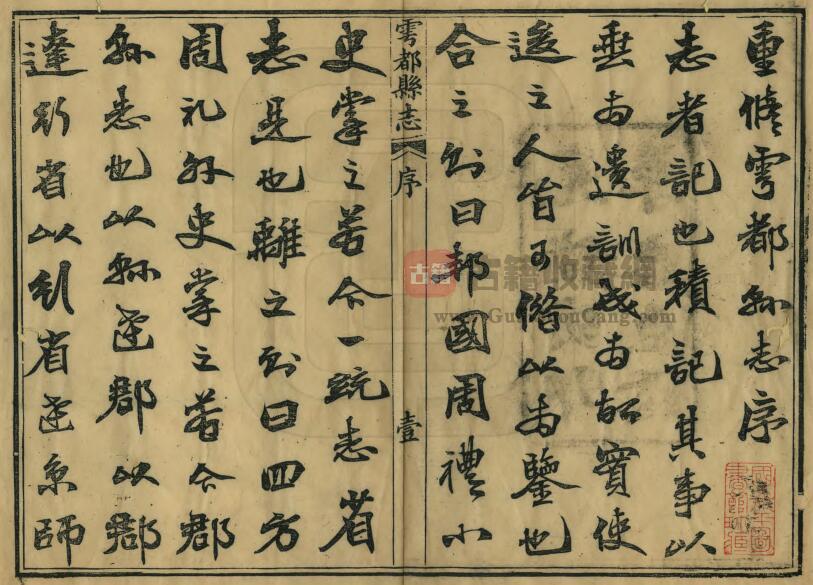 重脩雩都縣志序
志者記也積記其事以
垂為遺訓成為故實使
後之人皆可借以為鑒也
合之則曰邦國周禮小
雩都縣志 序 壹
史掌之若今一統志省
志是也離之則曰四方
周礼外史掌之若今郡
縣志也以縣達郡以郡
達行省以行省達京師
古籍
古籍收藏網
www.GuJiShouCang.com